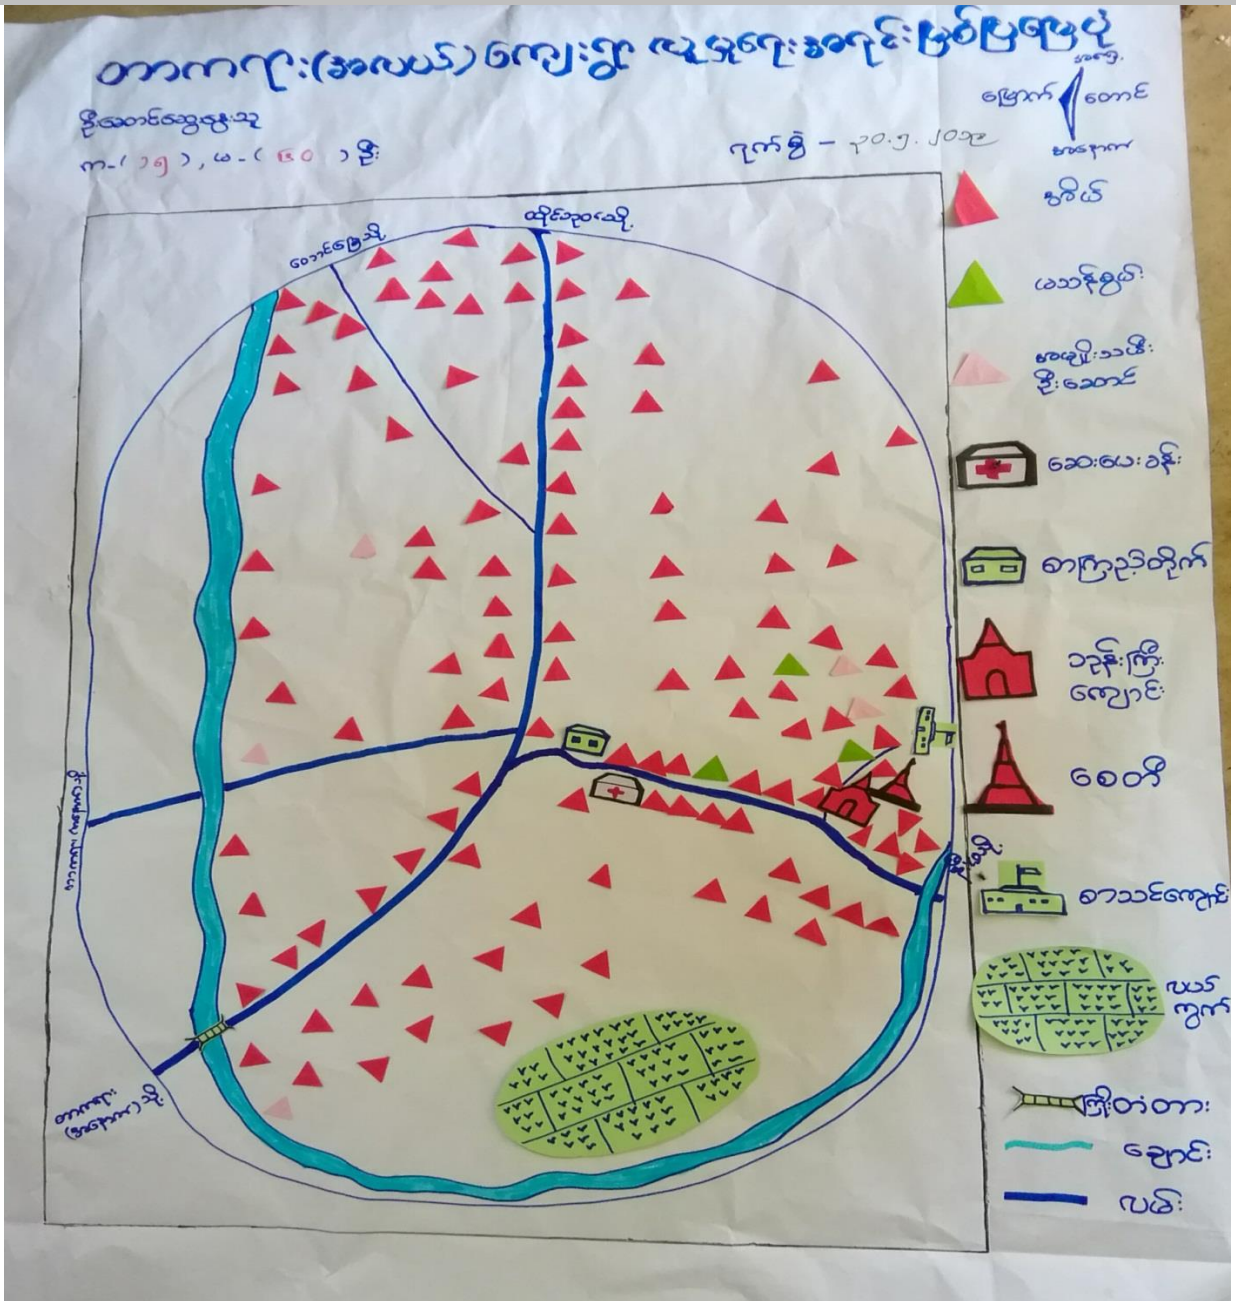 တာကရား(အလယ်)ကျေးရွာ လူမှုရေးအရင်းမြစ်ပြမြေပုံ
ဦးဆောင်ဆွေးနွေးသူ
က-(၁၅), မ-(၆၀) ဦး
ရက်စွဲ -
အရှေ့
မြောက်
တောင်
အနောက်
အိမ်
မသန်စွမ်း
အမျိုးသမီး
ဦးဆောင်
ဆေးပေးခန်း
စာကြည့်တိုက်
ဘုန်းကြီး
ကျောင်း
စေတီ
စာသင်ကျောင်း
လယ်
ကွက်
ကြိုးတံတား
ချောင်း
လမ်း
တာကရား
(အနောက်)သို့